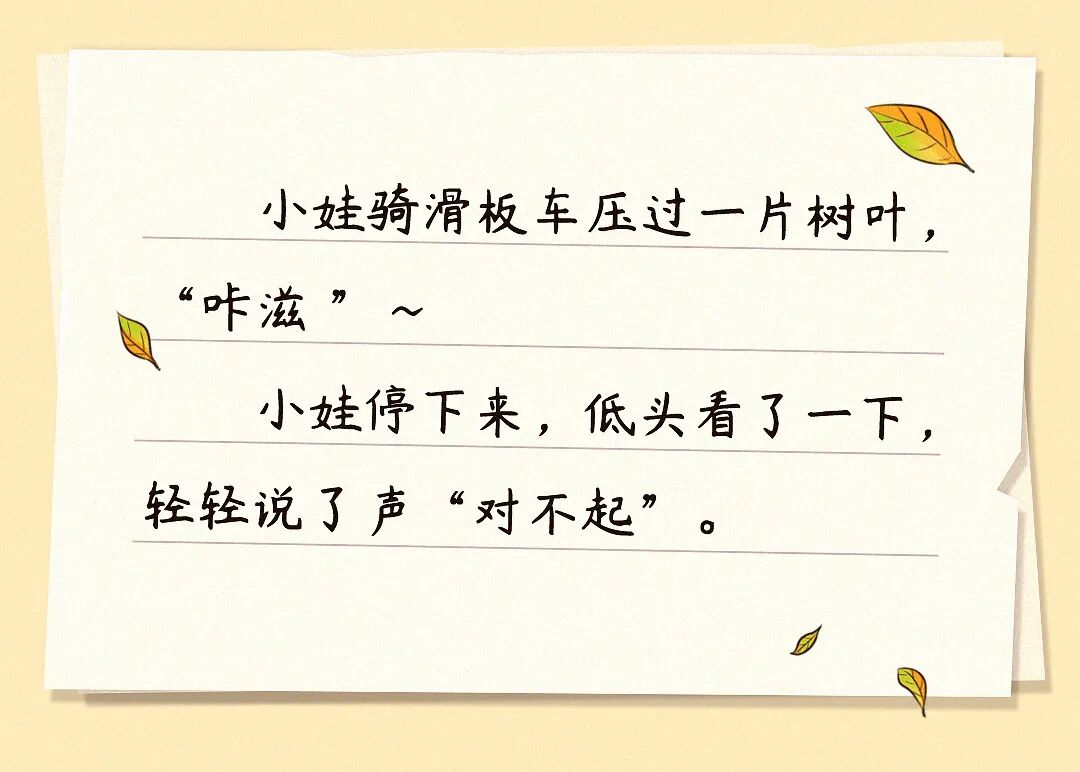 小娃骑滑板车压过一片树叶，
“咔滋”~
小娃停下来，低头看了一下，
轻轻说了声“对不起”。